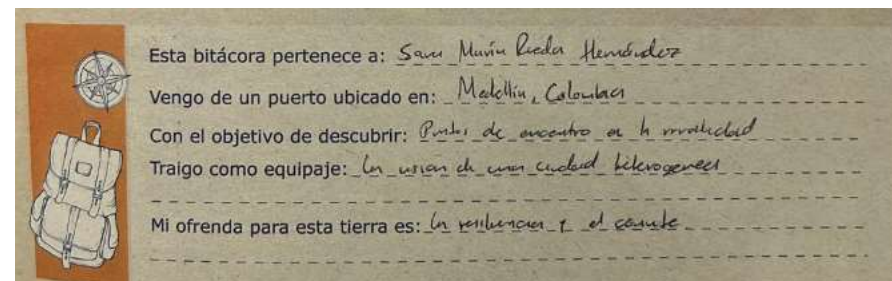 Esta bitácora pertenece a: Sara María Rueda Hernández
Vengo de un puerto ubicado en: Medellín, Colombia
Con el objetivo de descubrir: Puntos de encuentro en la ruralidad
Traigo como equipaje: La vision de una ciudad heterogenea
Mi ofrenda para esta tierra es: La resiliencia y el